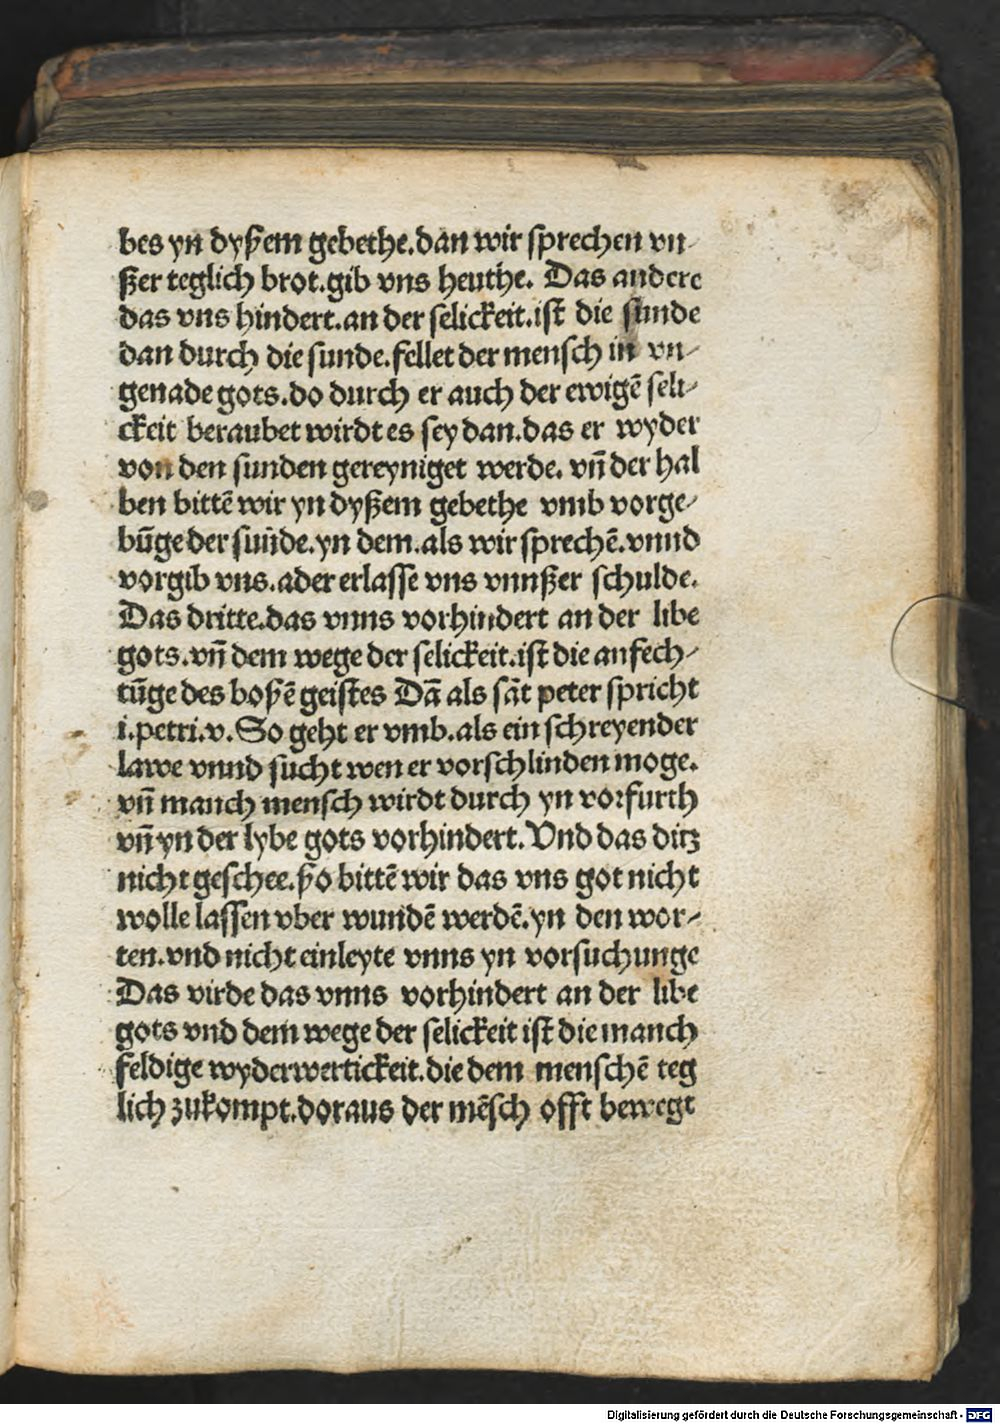 bes yn dyßem gebethe.dan wir sprechen vn⸗
ßer teglich brot.gib vns heuthe. Das andere
das vns hindert.an der selickeit.ist die sunde
dan durch die sunde.fellet der mensch in vn⸗
genade gots.do durch er auch der ewigē seli⸗
ckeit beraubet wirdt es sey dan.das er wyder
von den sunden gereyniget werde. vn̄ der hal
ben bittē wir yn dyßem gebethe vmb vorge⸗
būge der sun̄de.yn dem.als wir sprechē.vnnd
vorgib vns.ader erlasse vns vnnßer schulde.
Das dritte.das vnns vorhindert an der libe
gots.vn̄ dem wege der selickeit.ist die anfech⸗
tūge des boßē geistes Dā als sāt peter spricht
i.petri.v. So geht er vmb.als ein schreyender
lawe vnnd sucht wen er vorschlinden moge.
vn̄ manch mensch wirdt durch yn vorfurth
vn̄ yn der lybe gots vorhindert. Vnd das ditz
nicht geschee.ßo bittē wir das vns got nicht
wolle lassen vber wundē werdē.yn den wor⸗
ten.vnd nicht einleyte vnns yn vorsuchunge
Das virde das vnns vorhindert an der libe
gots vnd dem wege der selickeit ist die manch
feldige wyderwertickeit.die dem menschē teg
lich zukompt.doraus der mēsch offt bewegt
Digitalisierung gefördert durch die Deutsche Forschungsgemeinschaft - DFG